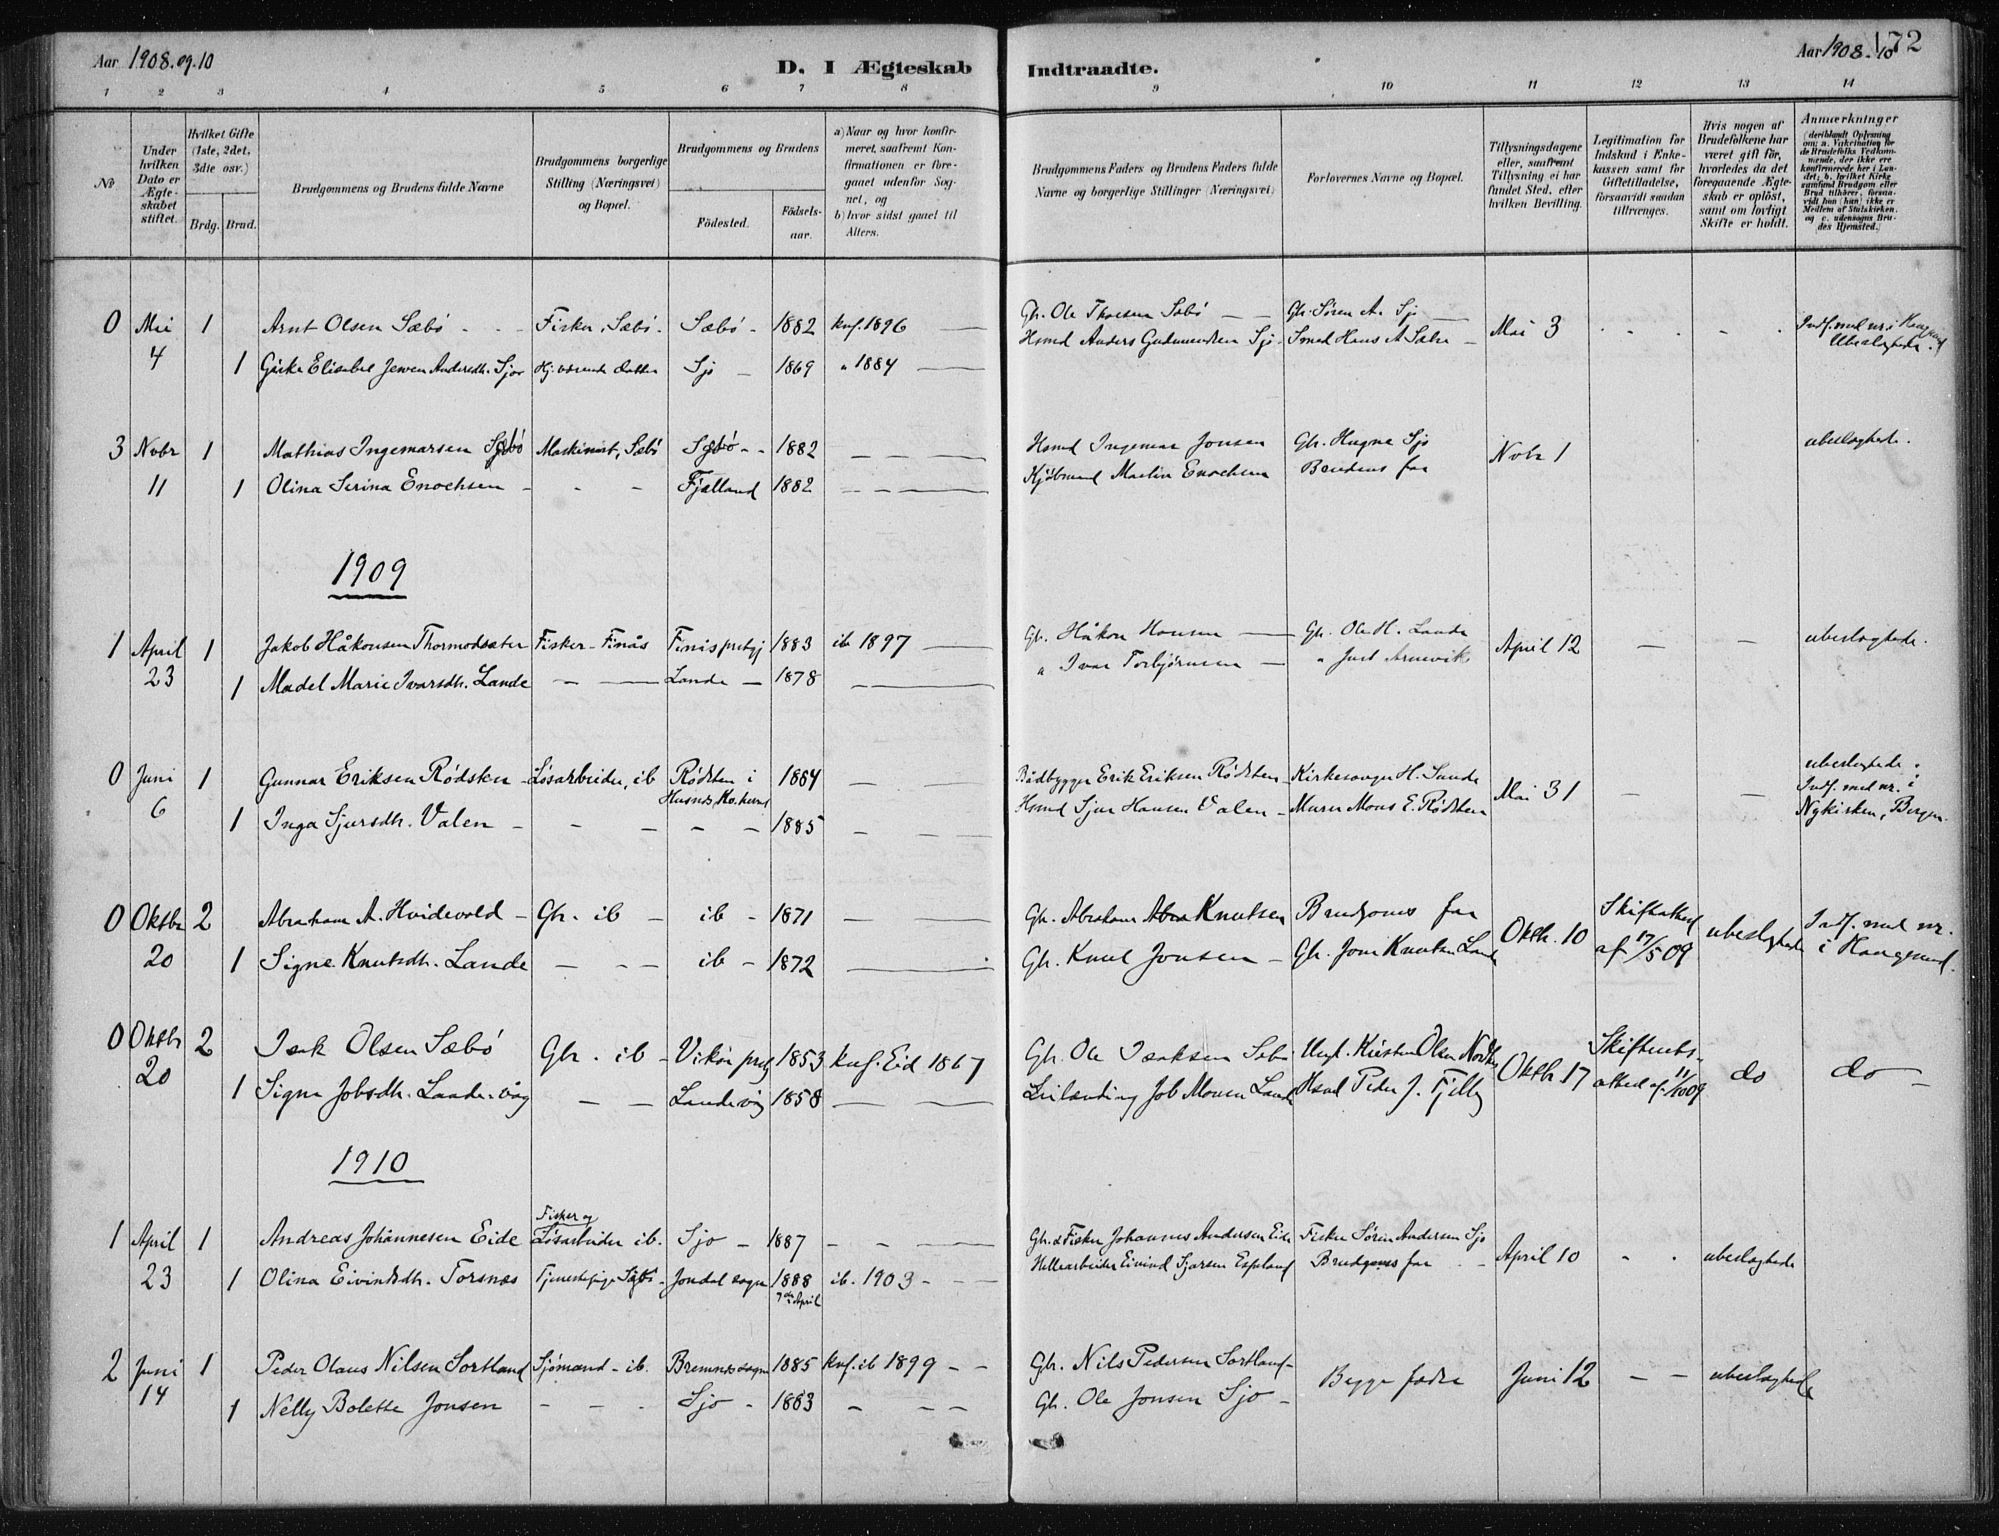 Aar 1908.og.10
D. I Ægteskab Indtraadte.
Aar 1908.10
172
1 2 3 4 5 6 7 8 9 10 11 12 13 14
No
Under hvilken Dato er Ægteskabet stiftet.
Hvilket Gifte (1ste, 2det, 3die osr.)
Brdg. Brud.
Brudgommens og Brudens fulde Navne
Brudgommens borgerlige Stilling (Næringsvei) og Bopæl.
Brudgommens og Brudens
Födested.
Födselsaar.
a) Naar og hvor konfirmeret, saafremt Konfirmationen er foregaaet udenfor Sognet, og
b) hvor sidst gaaet til Alters.
Brudgommens Faders og Brudens Faders fulde Navne og borgerlige Stillinger (Næringsvei)
Forlovernes Navne og Bopæl.
Tillysningsdagene eller, saafremt Tillysning ei har fundet Sted, efter hvilken Bevilling.
Legitimation for Indskud i Enkekassen samt for Giftetilladelse, forsaavidt saadan tiltrænges.
Hvis nogen af Brudefolkene har været gift för, hvorledes da det foregaaende Ægteskab er oplöst, samt om lovligt Skifte er holdt.
Anmærkninger (deriblandt Oplysning om: a. Vakcination for de Brudefolks Vedkommende, der ikke ere konfirmerede her i Landet; b. hvilket Kirkesamfund Brudgom eller Brud tilhører, forsaavidt han (hun) ikke er Medlem af Statskirken, og c. udensogns Brudes Hjemsted.)
0 Mai 1 Arnt Olsen Sæbö Fisker, Sæbö. Sæbö 1882 knf. 1896 Gb. Ole Sæbö Gb. Sören A. Sjo Mai 3 Indf. med nr. i
4 1 Elisabet Jensen Andersdh. Sjo Hj. værende datter Sjo 1869 " 1884 Hsmd Anders Gudmundsen Sjo Smed Hans A. Sæbö Ubeslægtede.
3 Novbr 1 Mathias Ingemarsen Sæbö Maskinist, Sæbö Sæbö 1882 Hsmd Ingemar Jonsen Gb. Sjo Novbr 1 ubeslægtede.
11 1 Olina Serina Enochsen Fjælland 1882 Kjöbmand Martin Enochsen Brudens far
1909
1 April 1 Jakob Håkonsen Thormodsæter Fisker - Finås Finås prstgj 1883 ib 1897 Gb. Håkon Hansen Gb. Ole H. Lande April 12 ubeslægtede.
23 1 Madel Marie Ivarsdh. Lande Lande 1878 " Ivar Torbjörnsen " Just Arnevik
0 Juni 1 Gunnar Eriksen Rödsten Lösarbeider, ib Rödsten i 1884 Bådbygger Erik Eriksen Rödsten Kirkesanger H. Sande Mai 31 ubeslægtede.
6 1 Inga Sjursdh. Valen 1885 Hsmd Sjur Hansen Valen Murer Mons E. Rödsten Indf. med nr. i Nykirken, Bergen.
0 Oktbr 2 Abraham A. Hvidevold Gb. ib ib 1871 Gb. Abraham Knutsen Brudgoms far Oktb. 10 Skifteattest ubeslægtede Indf. med nr.
20 1 Signe Knutsdh. Lande ib 1872 Gb. Knut Jonsen Gb. Jon Knutsen Lande af 17/5 09 i Haugesund.
0 Oktbr 2 Isak Olsen Sæbö Gb. ib Vikör prstg 1853 knf. Eid 1867 Gb. Ole Isaksen Sæbö Ungk. Kristen Olsen Oktb 17 Skifterets- do do
20 1 Signe Jobsdh. Landevåg Landevåg 1858 Leilænding Job Monsen Lande Hsmd Peder J. attest af 11/10 09
1910
1 April 1 Andreas Johannesen Eide Fisker og Lösarbeider ib. Sjo 1887 Gb. & Fisker Johannes Andersen Eide Fisker Sören Andersen Sjo April 10 ubeslægtede
23 1 Olina Eivindsdh. Torsnæs Tjenestepige Sæbö Jondal sogn 1888 7de April ib. 1903 Hellearbeider Eivind Sjursen Espeland Brudgoms far
2 Juni 1 Peder Olaus Nilsen Sortland Sjömand - ib. Bremnes sogn 1885 knf. ib 1899 Gb. Nils Pedersen Sortland Begge fædre Juni 12 ubeslægtede
14 1 Nelly Bolette Jonsen Sjo 1883 Gb. Ole Jonsen Sjo